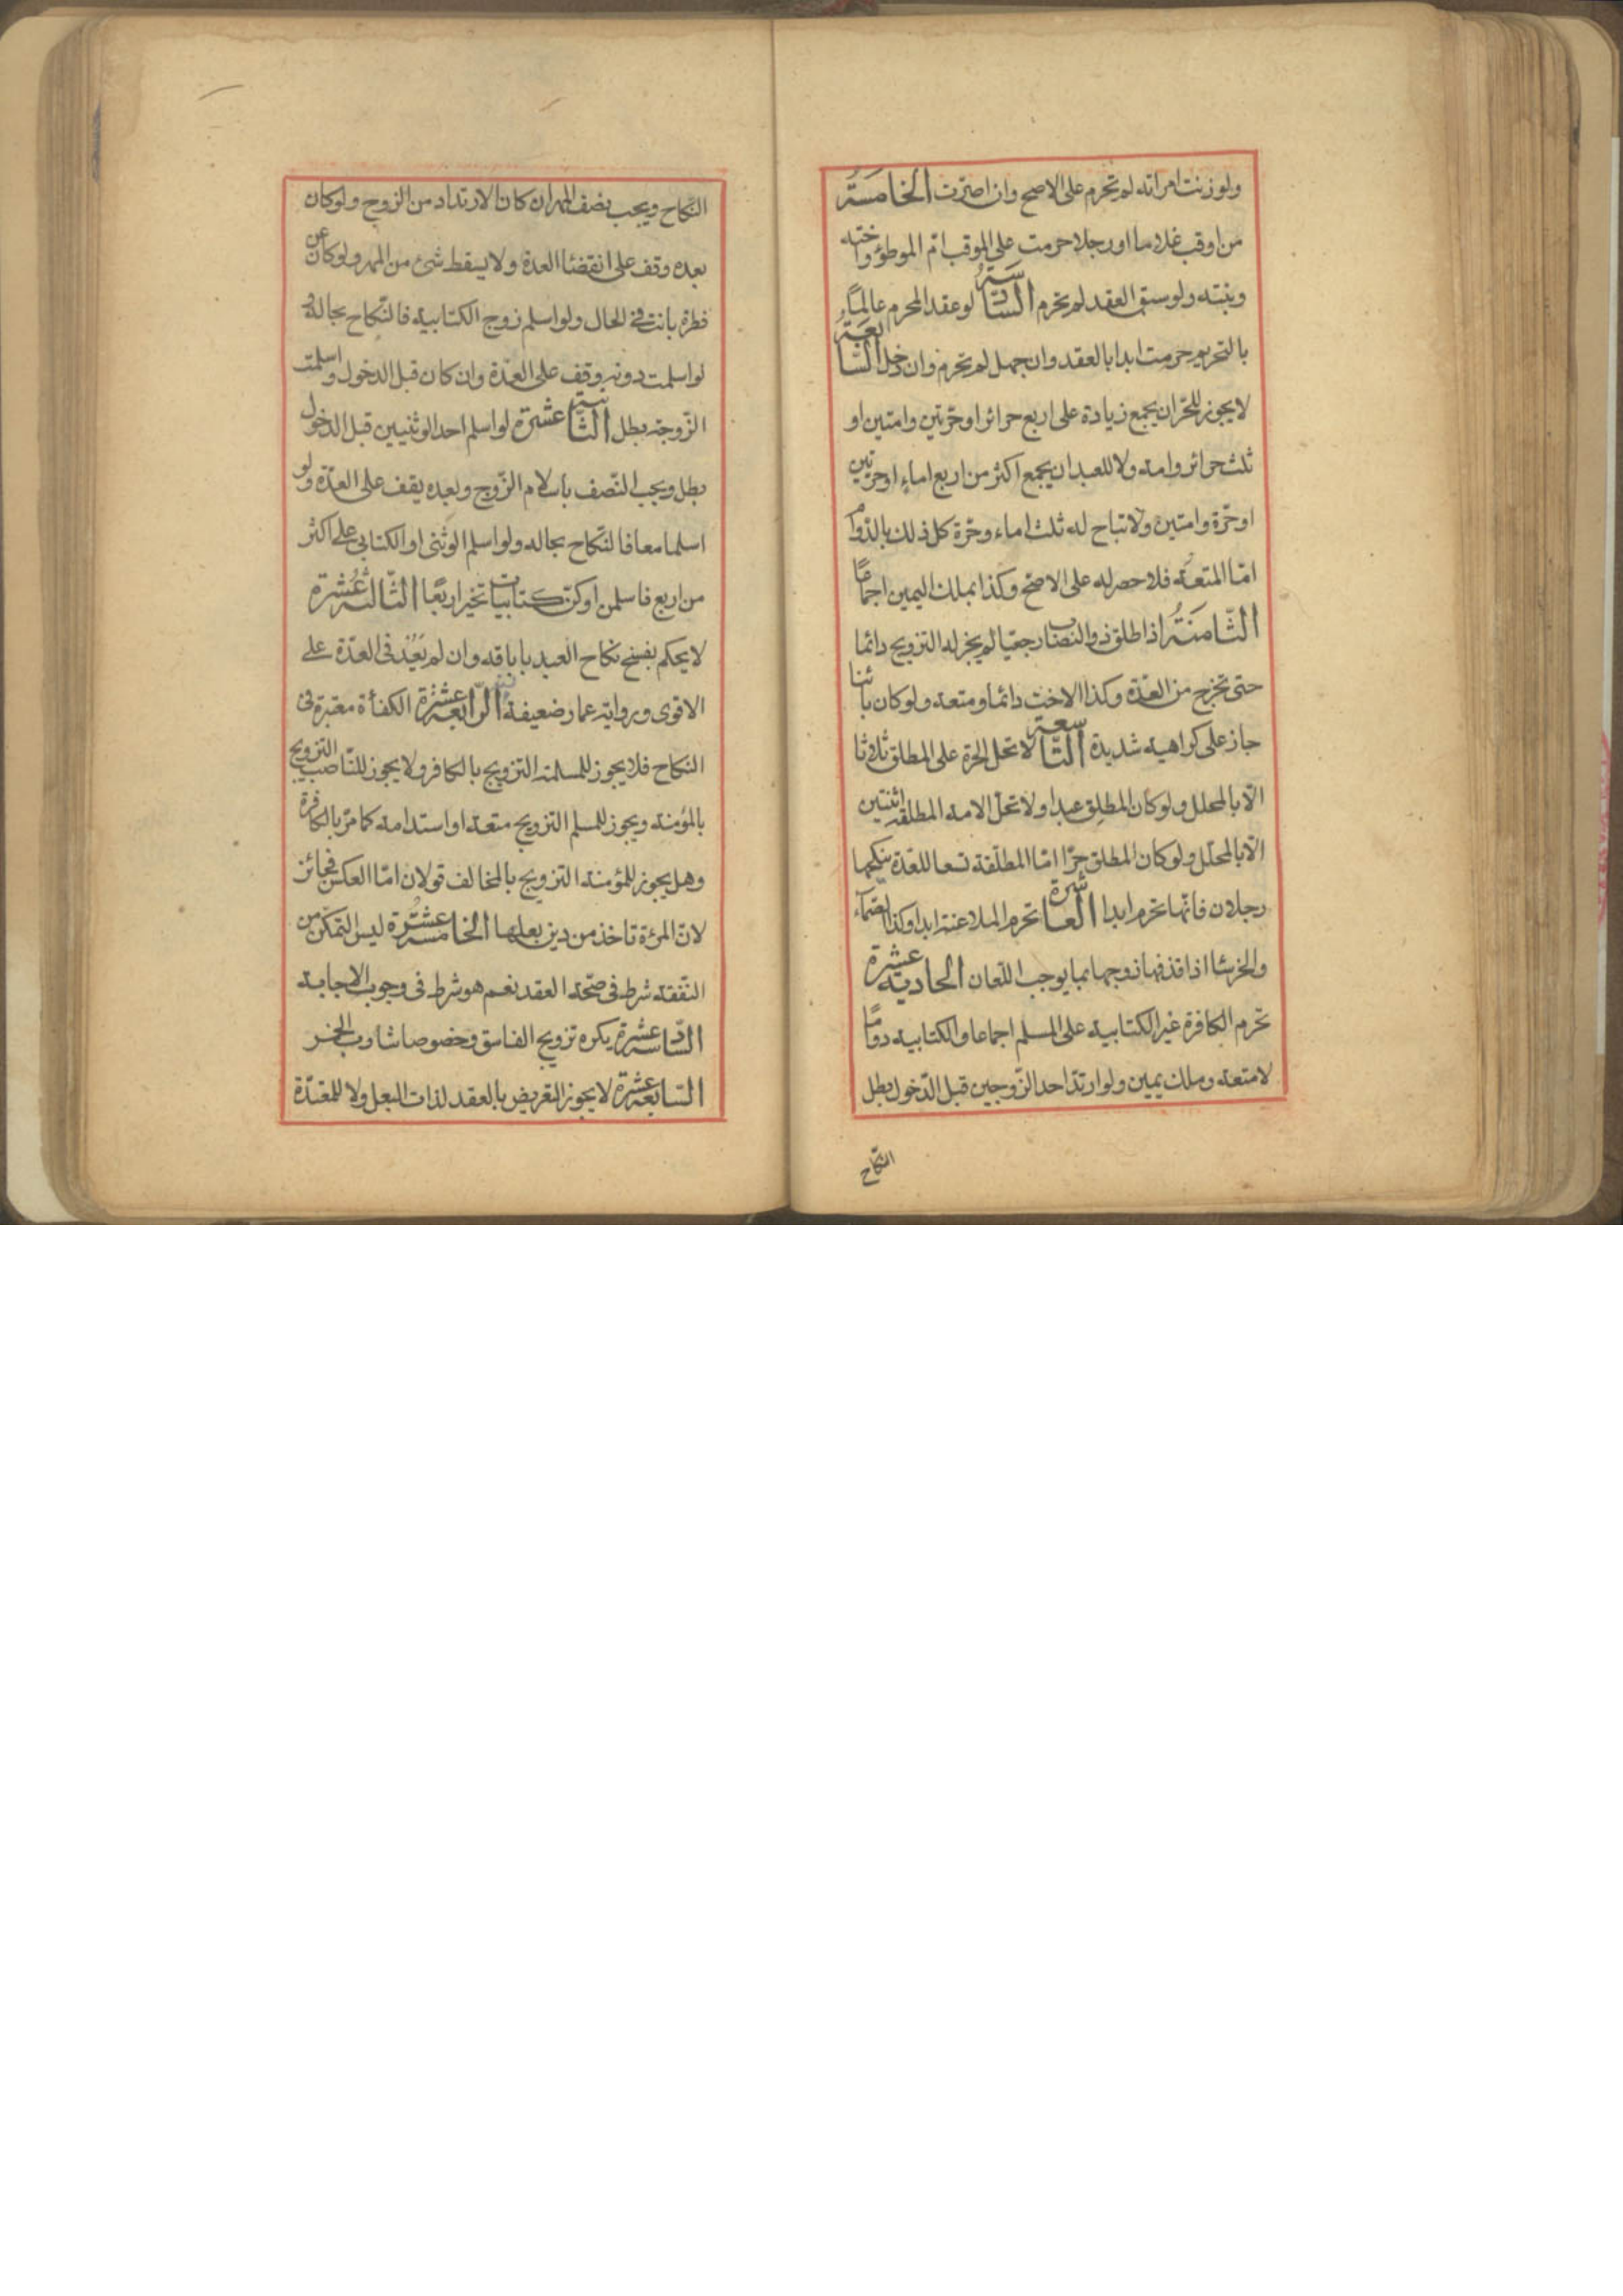 ولو زنت امراته لم تحرم على الاصح وان اصرّت الخامسة
من اوقب غلاما او رجلا حرمت على الموقب امّ الموطؤ واخته
وبنته ولو سبق العقد لم يحرم السّادسة لو عقد المحرم عالمًا
بالتحريم حرمت ابدا بالعقد وان جهل لم تحرم وان دخل السّابعة
لا يجوز للحرّ ان يجمع زيادة على اربع حرائر او حرّتين وامتين او
ثلث حرائر وامة ولا للعبد ان يجمع اكثر من اربع اماء او حرتين
او حرّة وامتين ولا تباح له ثلث اماء وحرّة كل ذلك بالدّوام
امّا المتعة فلا حصر له على الاصحّ وكذا بملك اليمين اجماعًا
الثّامنة اذا طلق ذو النصاب رجعيّا لم يجز له التزويج دائما
حتى تخرج من العدّة وكذا الاخت دائما ومتعة ولو كان بائنا
جاز على كراهية شديدة التّاسعة لا تحل الحرّة على المطلق ثلاثا
الّا بالمحلل ولو كان المطلق عبدا ولا تحلّ الامة المطلقة اثنتين
الّا بالمحلّل ولو كان المطلق حرّا امّا المطلّقة تسعا للعدّة ينكحها
رجلان فانّها تحرم ابدا العاشرة تحرم الملاعنة ابدا وكذا الصّماء
والخرساء اذا قذفها زوجها بما يوجب اللّعان الحادية عشرة
تحرم الكافرة غير الكتابية على المسلم اجماعا والكتابية دوامًا
لا متعة وملك يمين ولو ارتدّ احد الزّوجين قبل الدّخول بطل
النكاح
النّكاح ويجب نصف المهر ان كان الارتداد من الزوج ولو كان
بعده وقف على انقضاء العدة ولا يسقط شئ من المهر ولو كان عن
فطرة بانت في الحال ولو اسلم زوج الكتابية فالنّكاح بحاله و
لو اسلمت دونه وقف على العدّة وان كان قبل الدخول واسلمت
الزّوجة بطل الثّانية عشرة لو اسلم احد الوثنيين قبل الدخول
بطل ويجب النّصف باسلام الزّوج وبعده يقف على العدّة ولو
اسلما معا فالنّكاح بحاله ولو اسلم الوثنى او الكتابي على اكثر
من اربع فاسلمن او كنّ كتابيات تخير اربعًا الثّالثة عشرة
لا يحكم بفسخ نكاح العبد باباقه وان لم يعد في العدّة على
الاقوى ورواية عمار ضعيفة الرّابعة عشرة الكفأة معتبرة في
النكاح فلا يجوز للمسلمة التزويج بالكافر ولا يجوز للنّاصب التزويج
بالمؤمنة ويجوز للمسلم التزويج متعة او استدامة كما مرّ بالكافرة
وهل يجوز للمؤمنة التزويج بالمخالف قولان امّا العكس فجائز
لانّ المرٔة تاخذ من دين بعلها الخامسة عشرة ليس التمكّن من
النّفقة شرط في صحّة العقد نعم هو شرط في وجوب الاجابة
السّادسة عشرة يكره تزويج الفاسق وخصوصا شارب الخمر
السّابعة عشرة لا يجوز التعريض بالعقد لذات البعل ولا للمعتدّة